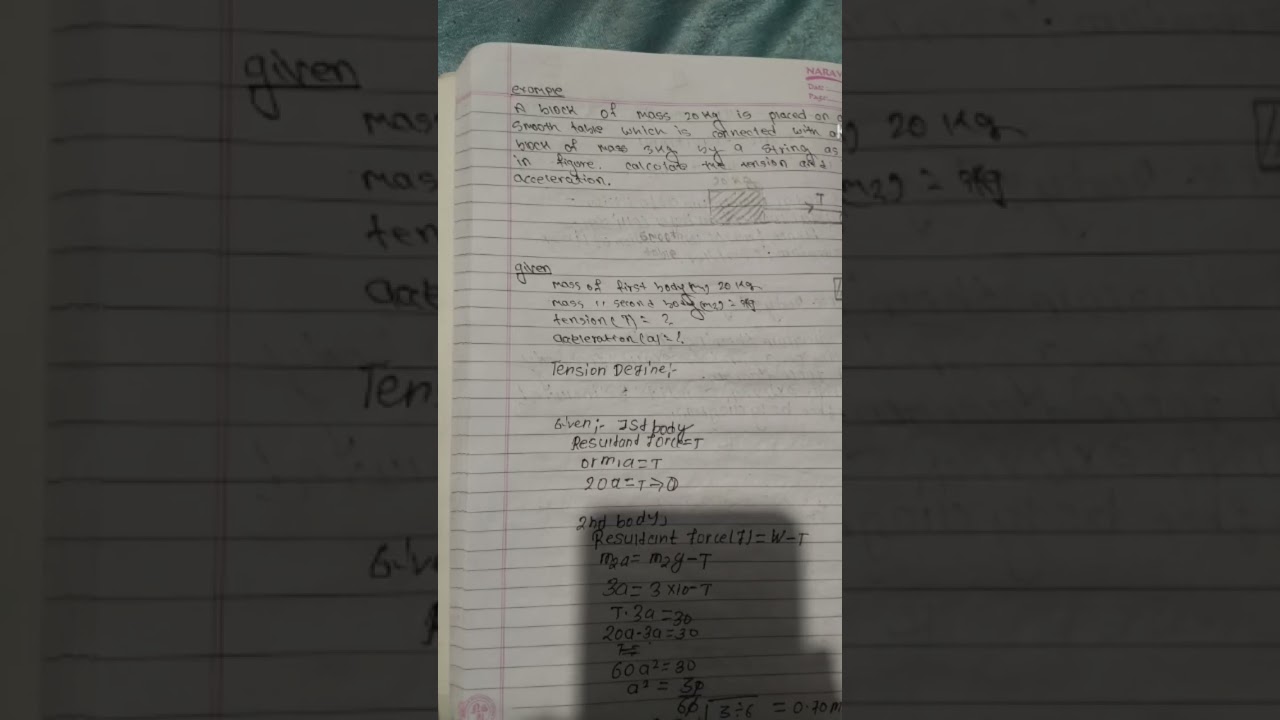 NARAY
Date:
Page:
example
A block of mass 20 kg is placed on a
smooth table which is connected with a
block of mass 3kg by a string as
in figure. calculate the tension and
acceleration.
20 kg
T
smooth
table
given
mass of first body(m1) 20 kg
mass " second body(m2) = 3kg
tension(T) = ?
acceleration(a) = ?
Tension Define:-
Given:- Ist body
Resultant force=T
or m1a=T
20a=T→①
2nd body,
Resultant force(T) = W-T
m2a= m2g-T
3a= 3×10-T
T.3a=30
20a.3a=30
60a²=30
a² = 30
60
3÷6 = 0.70m